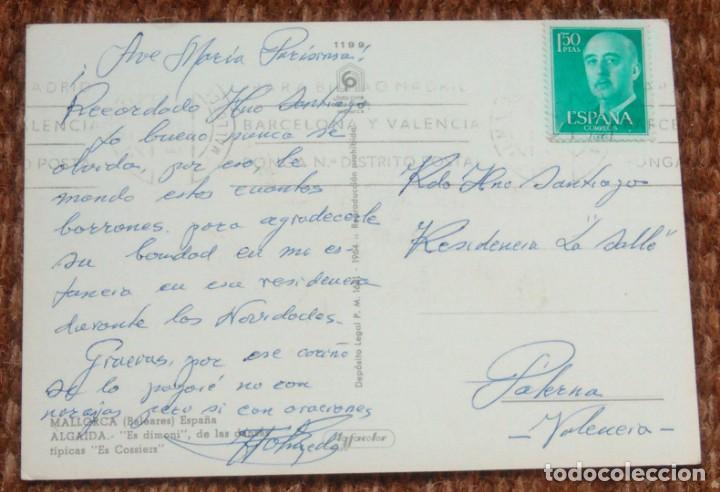 ¡Ave María Purísima!
Recordado Hno Santiago
Lo bueno nunca se
olvida, por eso, le
mando estos cuantos
borrones para agradecerle
su bondad en mi es-
tancia en esa residencia
durante las Navidades.
Gracias, por ese cariño
se lo pagaré no con
naranjas pero si con oraciones
MALLORCA (Baleares) España
ALGAIDA.- "Es dimoni", de las danzas
típicas "Es Cossiers"
1199
Depósito Legal P. M. 1964 - Reproducción prohibida
1'50
PTAS
ESPAÑA
CORREOS
BILBAO MADRID
VALENCIA
BARCELONA Y VALENCIA
PONGA N.º DISTRITO POSTAL
PONGA
Rdo Hno Santiago
Residencia "La Salle"
Paterna
-Valencia-
todocoleccion
todocoleccion.net